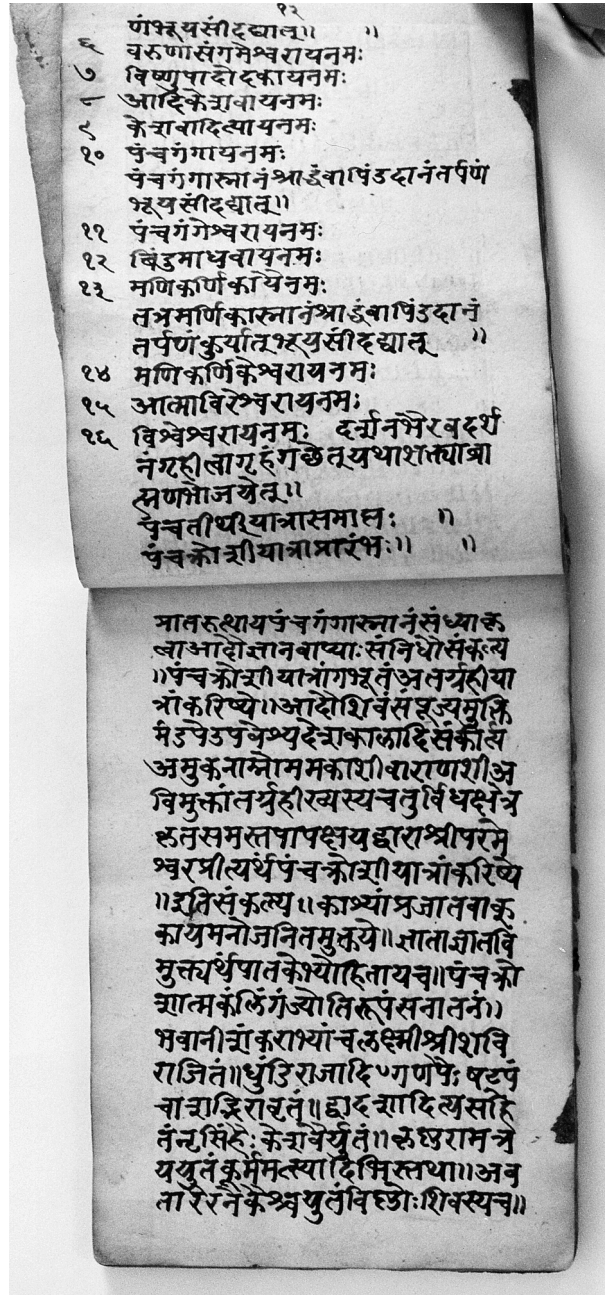 १२
णंभूयसींदद्यात्॥ ॥
६ वरुणासंगमेश्वरायनमः
७ विष्णुपादोदकायनमः
८ आदिकेशवायनमः
९ केशवादित्यायनमः
१० पंचगंगायनमः
पंचगंगास्नानंश्राद्धंवापिंडदानंतर्पणं
भूयसींदद्यात्॥
११ पंचगंगेश्वरायनमः
१२ बिंदुमाधवायनमः
१३ मणिकर्णिकायैनमः
तत्रमर्णिकास्नानंश्राद्धंवापिंडदानं
तर्पणंकुर्यात्भूयसींदद्यात् ॥
१४ मणिकर्णिकेश्वरायनमः
१५ आत्माविरेश्वरायनमः
१६ विश्वेश्वरायनमः दर्शनंभैरवदर्श
नंगृहीत्वागृहंगछेत्यथाशक्त्याब्रा
ह्मणभोजयेत्॥
पंचतीर्थीयात्रासमाप्तः ॥
पंचक्रोशीयात्राप्रारंभः॥ ॥
प्रातरुत्थायपंचगंगास्नानंसंध्याकृ
त्वाआदौज्ञानवाप्याःसंनिधौसंकल्प्य
॥पंचक्रोशीयात्रांगभूतंअंतर्गृहीया
त्रांकरिष्ये॥आदौशिवंसंपूज्यमुक्ति
मंडपेउपवेश्यदेशकालादिसंकीर्त्य
अमुकनाम्नोममकाशीवाराणशीअ
विमुक्तांतर्गृहीरव्यस्यचतुर्विधक्षेत्र
कृतसमस्तपापक्षयद्वाराश्रीपरमे
श्वरप्रीत्यर्थंपंचक्रोशीयात्रांकरिष्ये
॥इतिसंकल्प्य॥काश्यांप्रजातवाक्
कायमनोजनितमुक्तये॥ज्ञाताज्ञातवि
मुक्त्यर्थंपातकेभ्योहितायच॥पंचक्रो
शात्मकंलिंगंज्योतिरूपंसनातनं॥
भवानीशंकराभ्यांचलक्ष्मीश्रीशवि
राजितं॥धुंडिराजादिगणेपैःषट्पं
चाशद्भिरावृतं॥द्वादशादित्यसहि
तंनृसिंहैःकेशवैर्युतं॥कृष्णरामत्र
ययुतंकूर्ममत्स्यादिभिस्तथा॥अव
तारैरनेकैश्चयुतंविष्णोःशिवस्यच॥